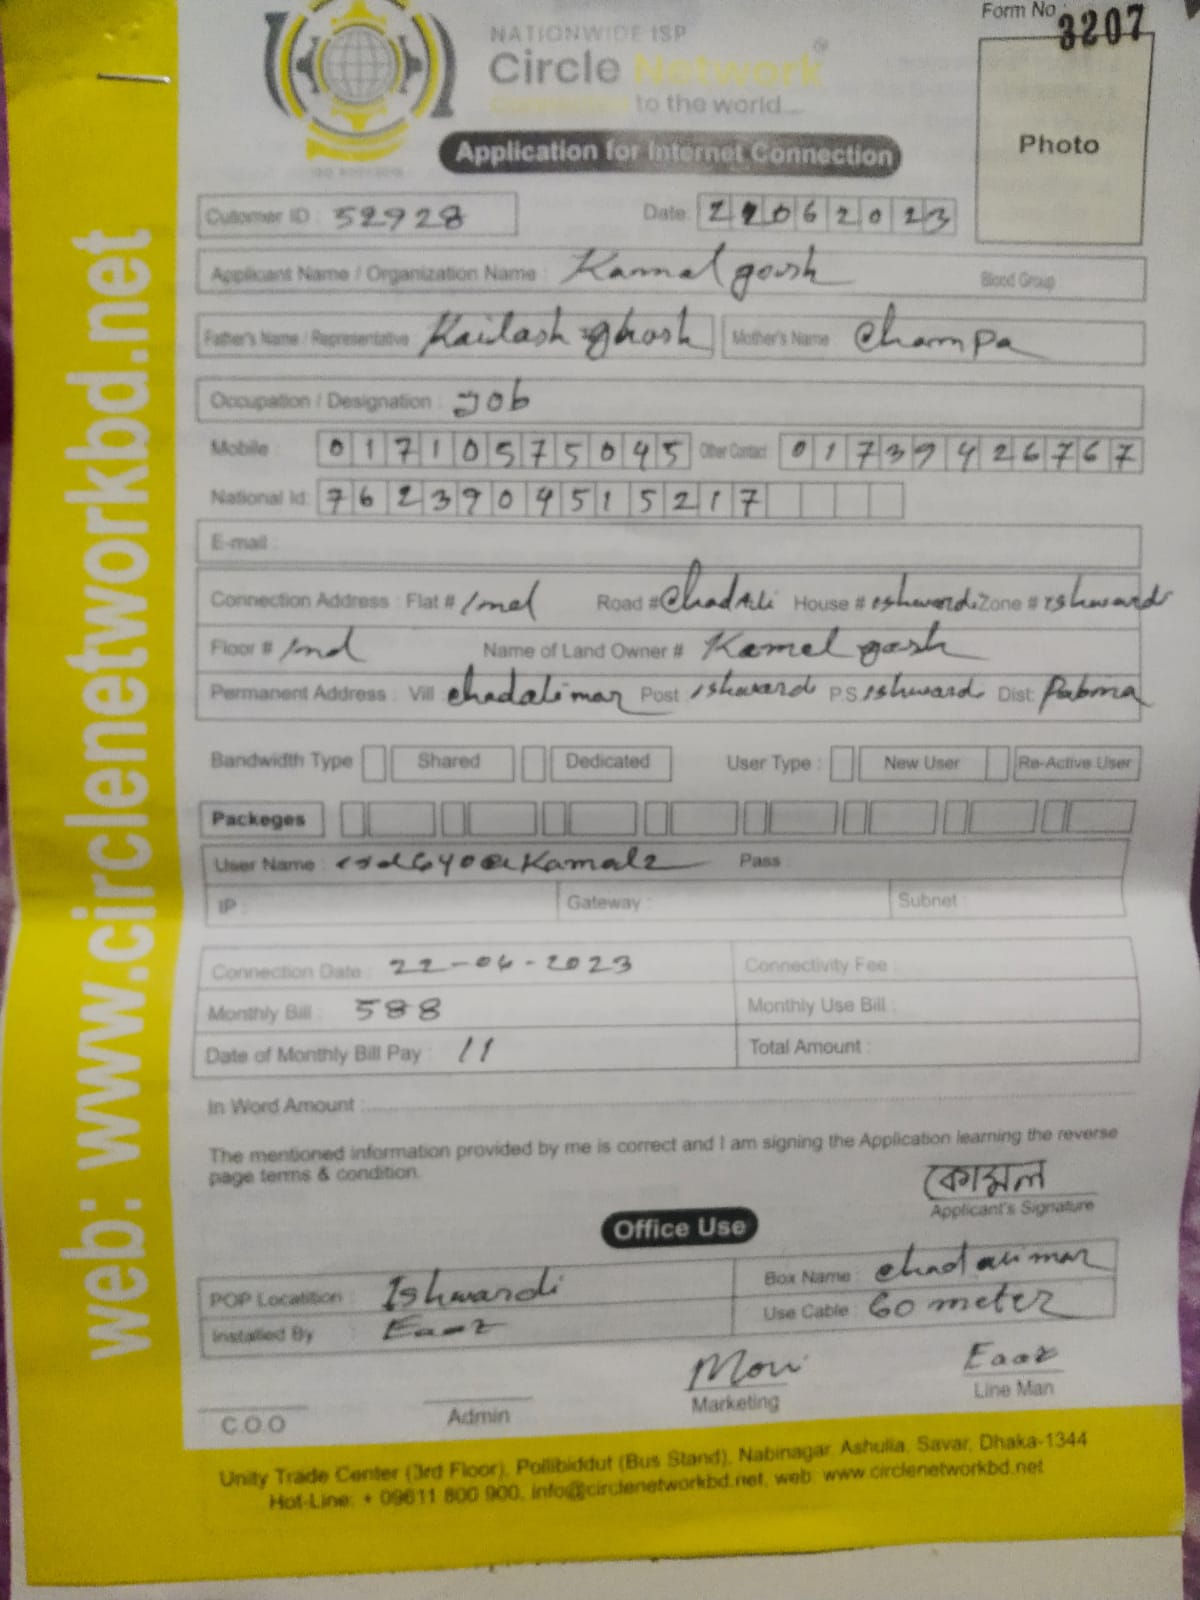 Form No 3207
NATIONWIDE ISP
Circle Network
to the world...
Photo
Application for Internet Connection
Cutomer ID : 52928 Date: 22062023
Applicant Name / Organization Name : Kamal gosh Blood Group
Father's Name / Representative : Kailash ghosh Mother's Name : Champa
Occupation / Designation : Job
Mobile : 01710575045 Other Contact 01739426767
National Id: 7623904515217
E-mail :
Connection Address : Flat # Road # House # Zone #
Floor # Name of Land Owner # Kamel gosh
Permanent Address : Vill chadalimar Post ishward P.S. ishwardi Dist: Pabma
Bandwidth Type Shared Dedicated User Type : New User Re-Active User
Packeges
User Name : Pass
IP : Gateway : Subnet
Connection Date : 22-06-2023 Connectivity Fee :
Monthly Bill : 588 Monthly Use Bill :
Date of Monthly Bill Pay : 11 Total Amount :
In Word Amount :
The mentioned information provided by me is correct and I am signing the Application learning the reverse
page terms & condition.
কোমল
Applicant's Signature
Office Use
POP Locatition : Ishwardi Box Name : chadalimar
Installed By : Use Cable : 60 meter
C.O.O Admin Marketing Line Man
Unity Trade Center (3rd Floor), Pollibiddut (Bus Stand), Nabinagar, Ashulia, Savar, Dhaka-1344
Hot-Line: + 09611 800 900, info@circlenetworkbd.net, web: www.circlenetworkbd.net
web: www.circlenetworkbd.net